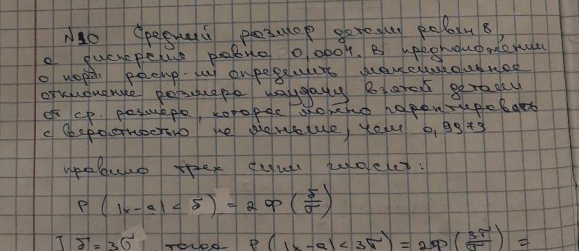 N10 Средний размер детали равен 8,
а дисперсия равна 0,0004. В предположении
о норм. распр-ии определить максимальное
отклонение размера наудачу взятой детали
от ср. размера, которое можно гарантировать
с вероятностью не меньше, чем 0,9973
правило трех сигм гласит:
P(|x-a|<δ) = 2Ф(δ/σ)
] δ=3σ тогда P(|x-a|<3σ) = 2Ф(3σ/σ) =